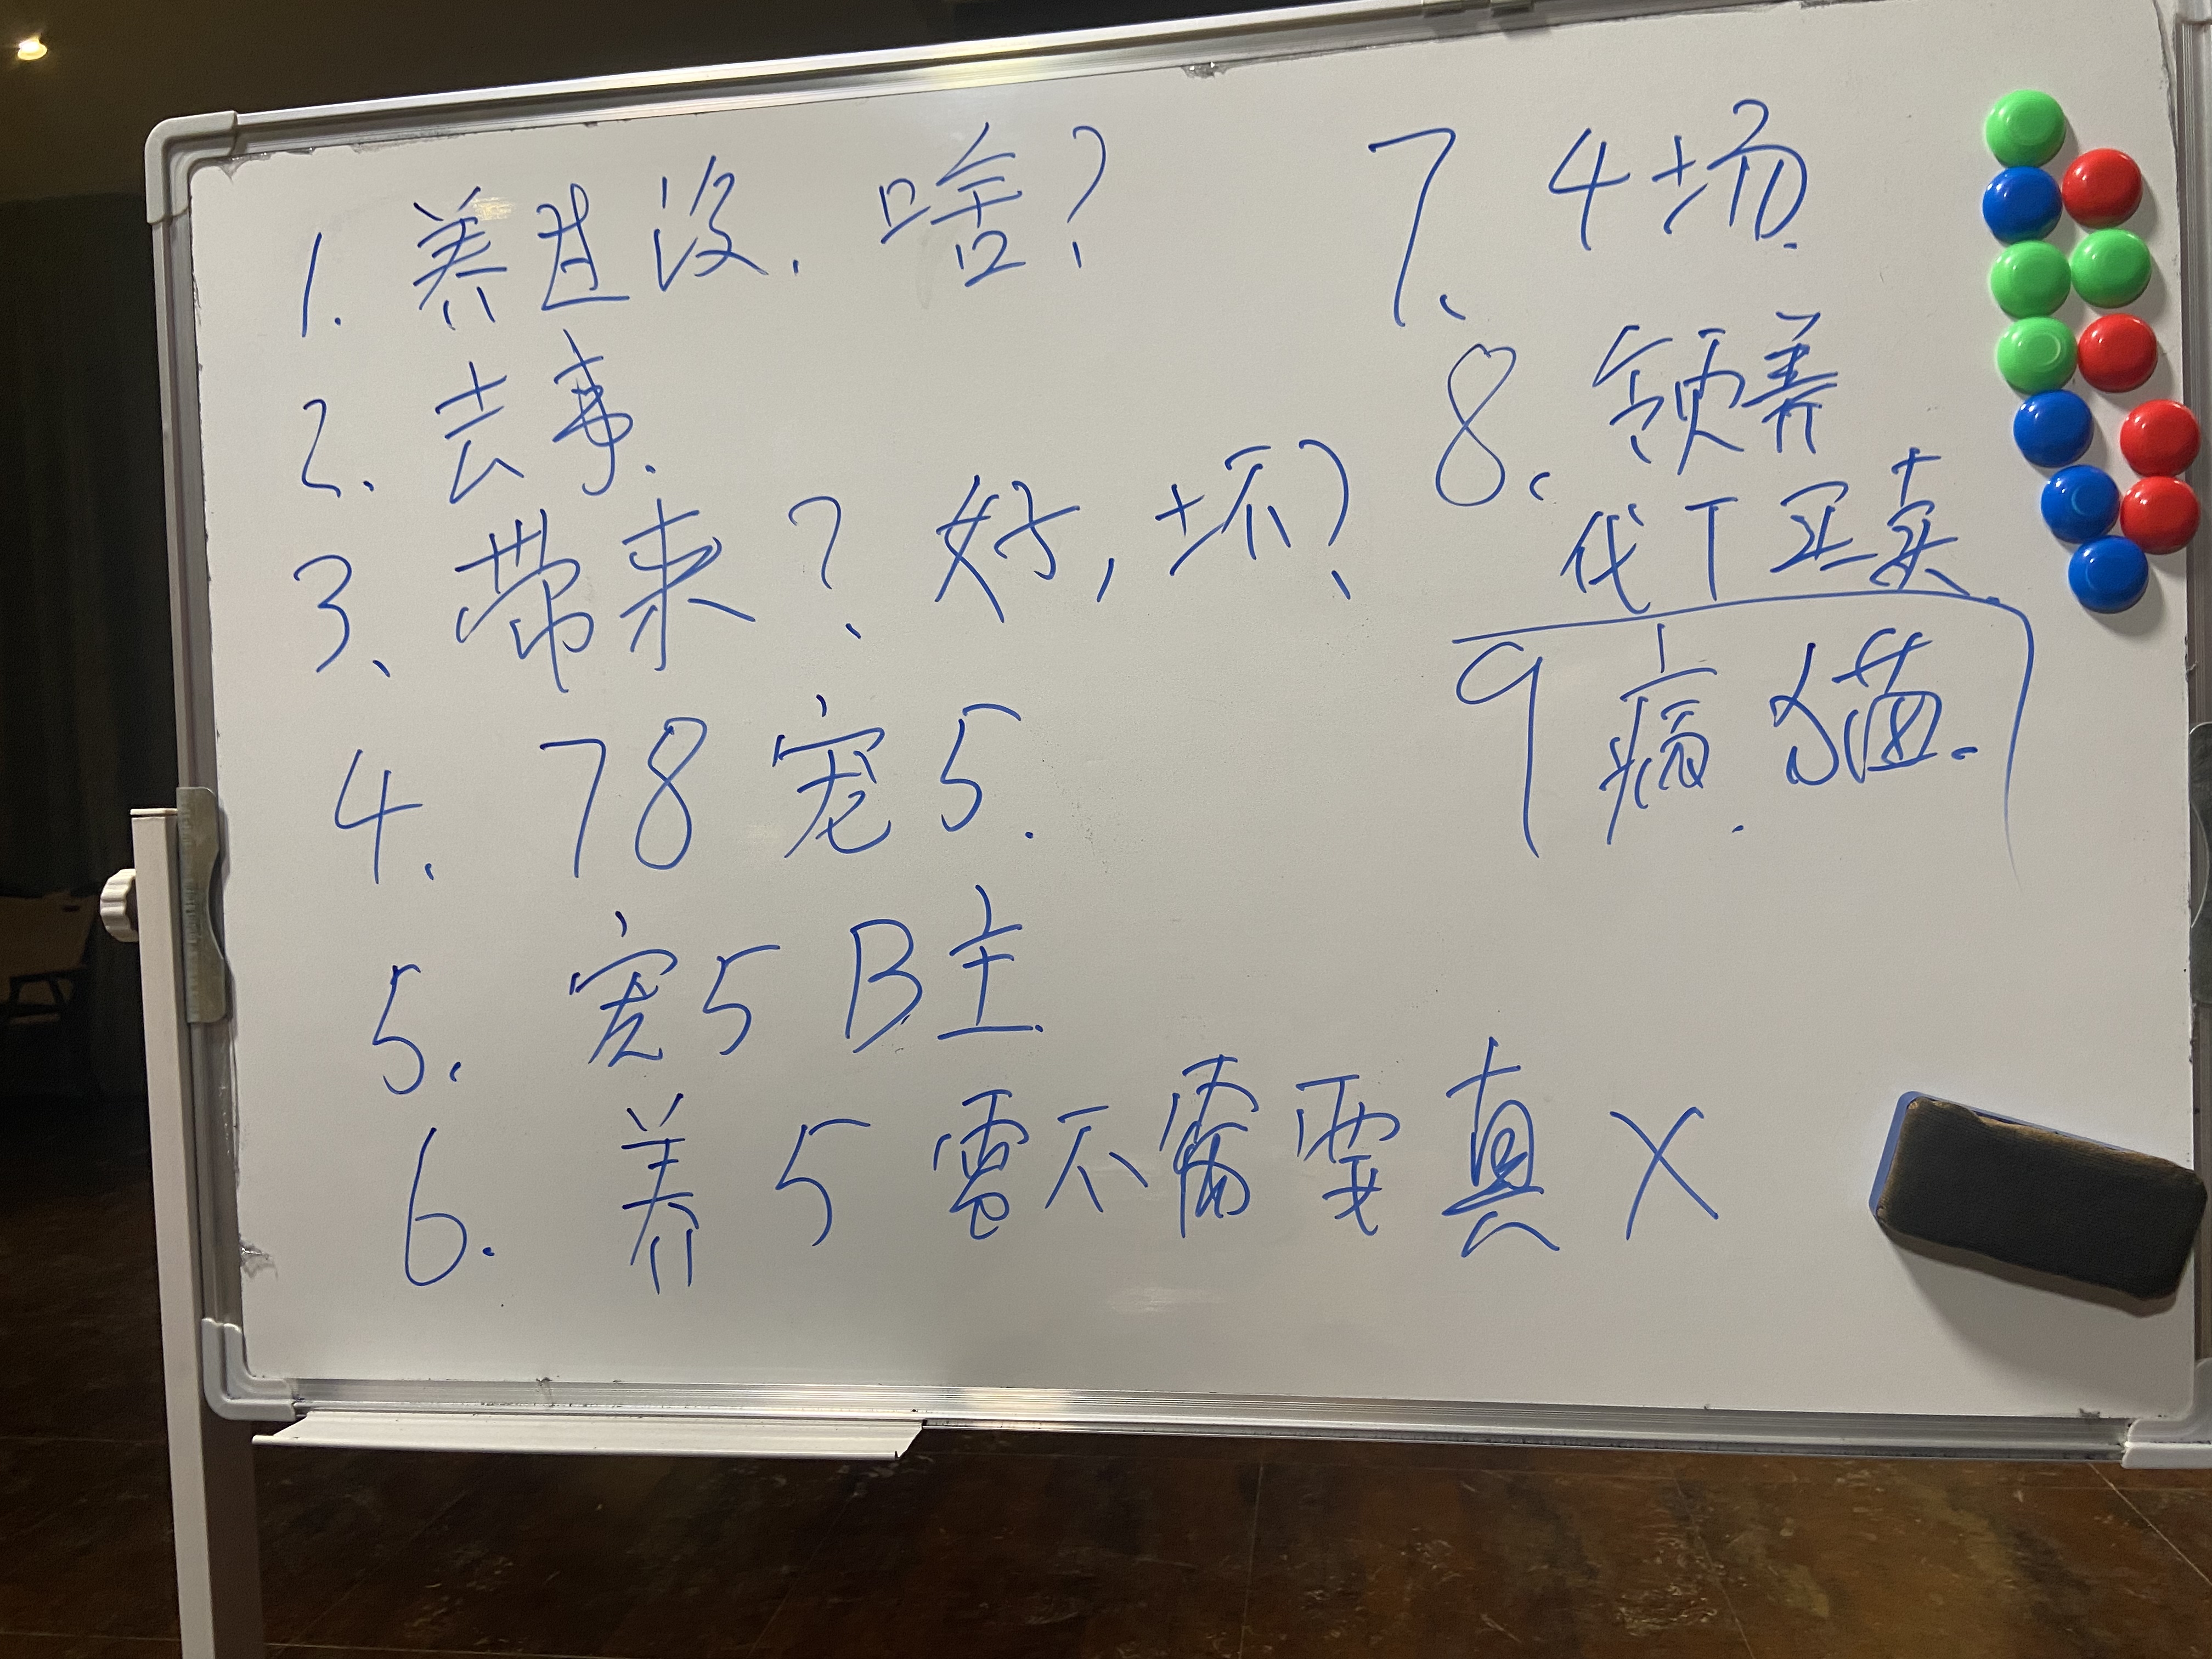 1. 养过没. 啥?
2. 去事.
3、带来? 好, 坏?
4. 78宠5.
5. 宠5 B主.
6. 养5需不需要真X
7、4场.
8. 领养
代T买卖.
9 病. 猫.